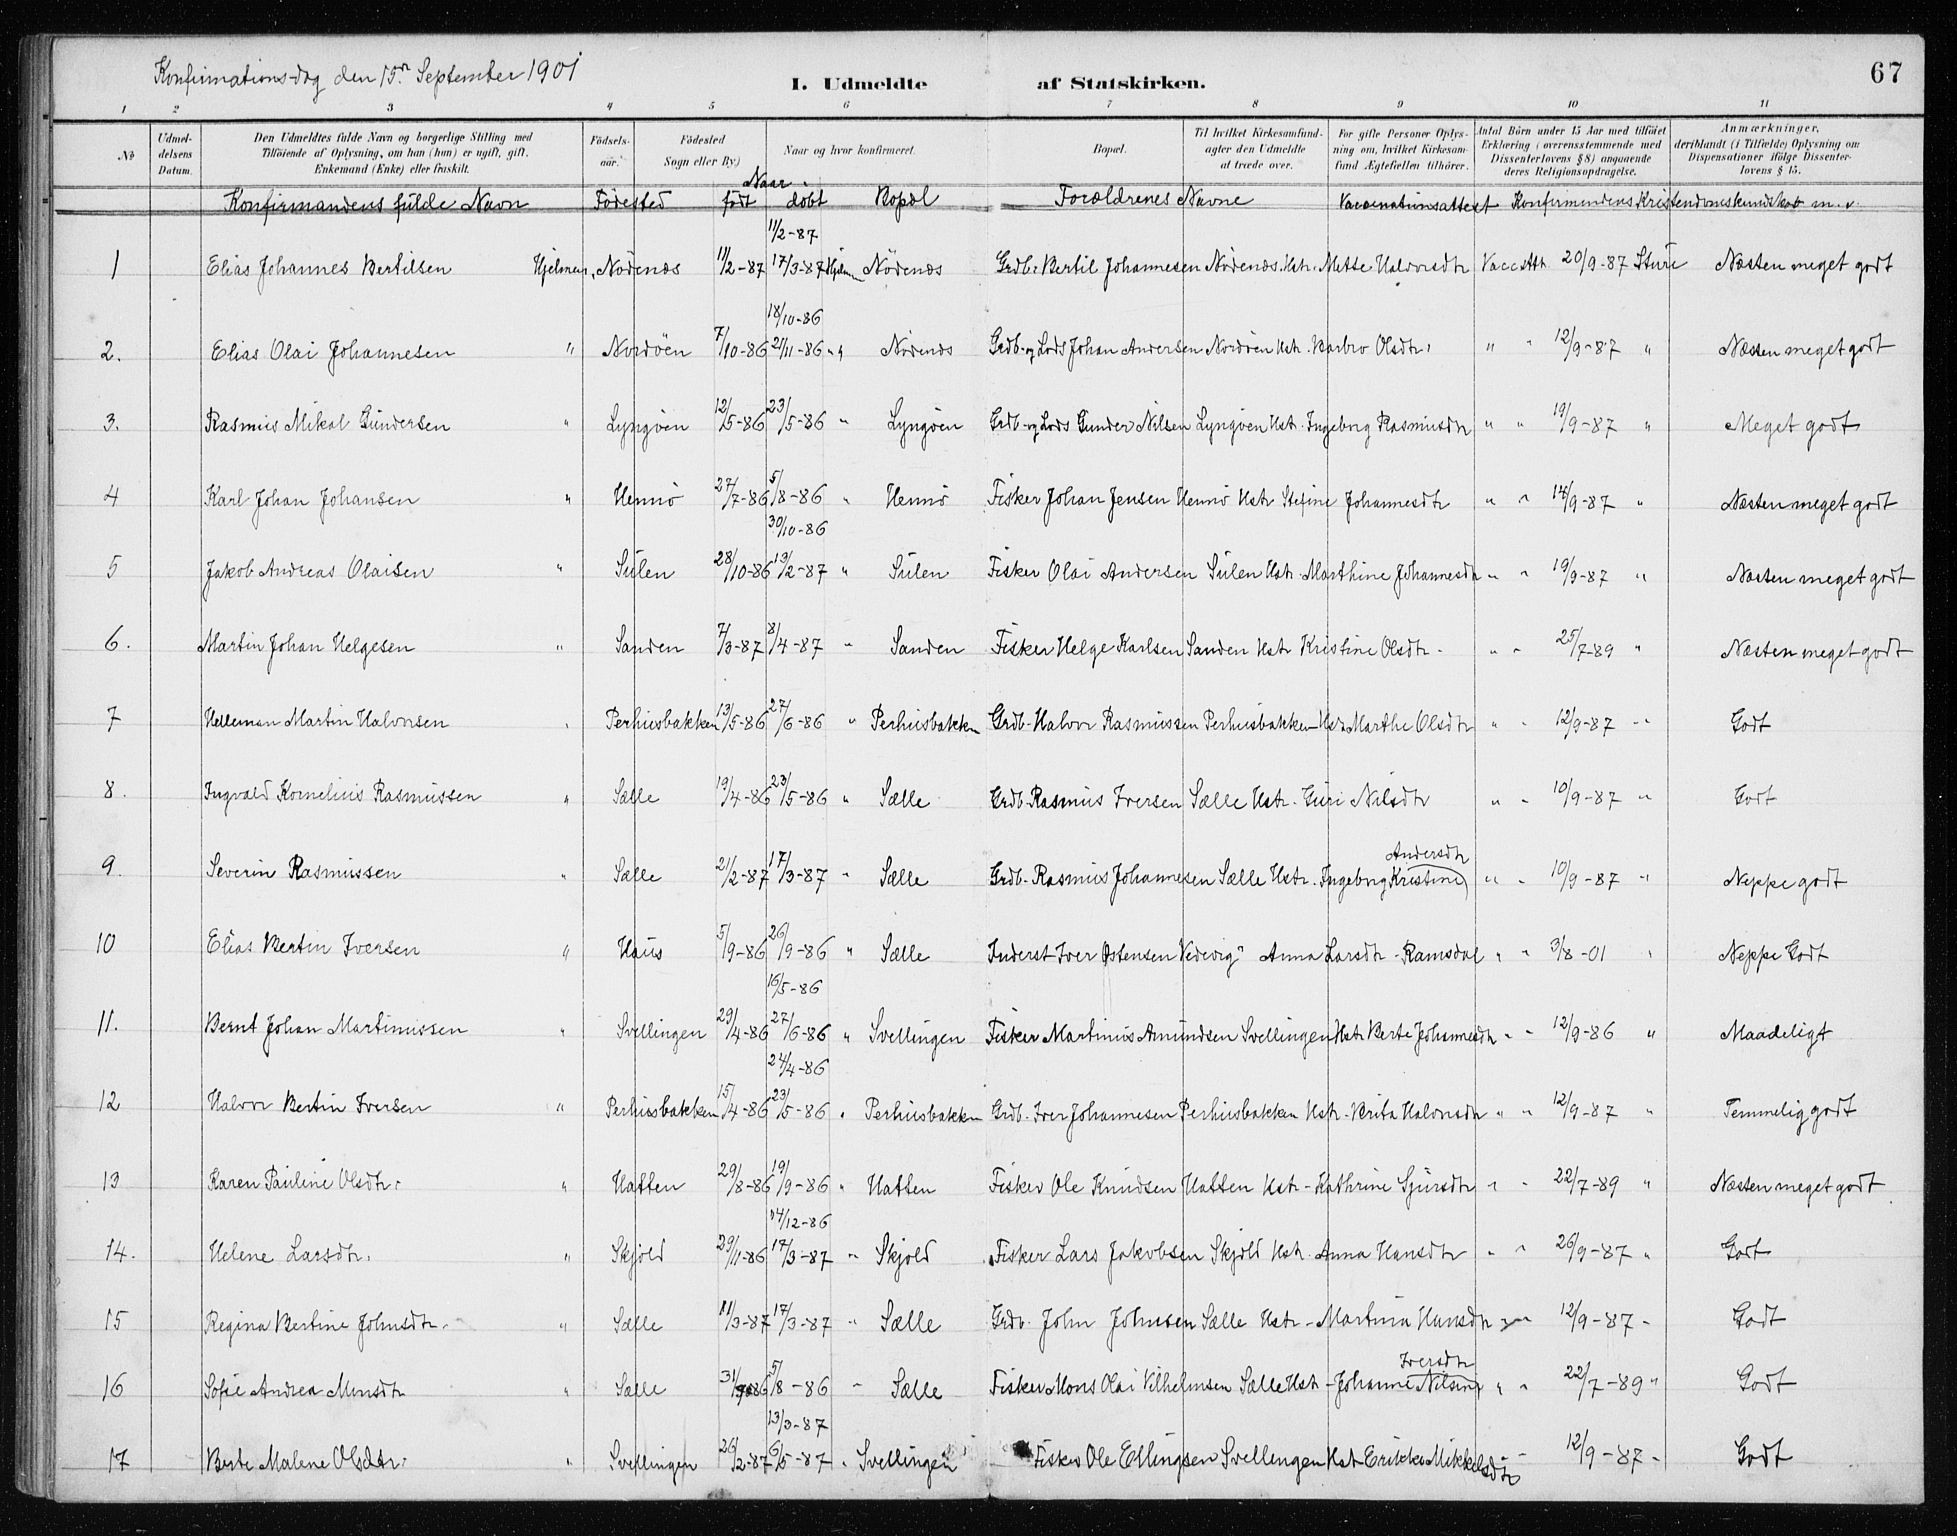 Konfirmations-dag den 15de September 1901
I. Udmeldte af Statskirken. 67
1 2 3 4 5 6 7 8 9 10 11
No
Udmel-delsens Datum.
Den Udmeldtes fulde Navn og borgerlige Stilling med Tilföiende af Oplysning, om han (hun) er ugift, gift. Enkemand (Enke) eller fraskilt.
Födsels-aar.
Födested Sogn eller By)
Naar og hvor konfirmeret.
Bopæl.
Til hvilket Kirkesamfund- agter den Udmeldte at træde over.
For gifte Personer Oplys-ning om, hvilket Kirkesam-fund Ægtefellen tilhörer.
Antal Börn under 15 Aar med tilföiet Erklæring (overensstemmende med Dissenterlovens § 8) angaaende deres Religionsopdragelse.
Anmærkninger, deriblandt (i Tilfælde) Oplysning om Dispensationer ifölge Dissenter-lovens § 15.
Naar
Konfirmandens fulde Navn Fødested født døbt Bopæl Forældrenes Navne Vaccinationsattest Konfirmandens Kristendomskundskab m. v.
11/2-87
1 Elias Johannes Bertilsen Hjelmen, Nödenes 11/2-87 17/3-87 Hjelm Nödenes Grdb. Bertil Johannesen Nödenes Hstr. Mette Halvorsdtr Vacc Att 20/9-87 Sture Næsten meget godt
18/10-86
2. Elias Olai Johannesen " Nordöen 7/10-86 21/11-86 " Nödenes Grdb- og Lods Johan Andersen Nordöen Hstr. Barbro Olsdtr. " " 12/9-87 " Næsten meget godt
3. Rasmus Mikal Gundersen " Lyngöen 12/5-86 23/5-86 " Lyngöen Grdb- og Lods Gunder Nilsen Lyngöen Hstr. Ingeborg Rasmusdtr " " 19/9-87 " Meget godt
4 Karl Johan Johansen " Hennö 27/7-86 5/8-86 " Hennö Fisker Johan Jensen Hennö Hstr Stefine Johannesdtr " " 14/9-87 " Næsten meget godt
30/10-86
5 Jakob Andreas Olaisen " Sulen 28/10-86 13/2-87 " Sulen Fisker Olai Andersen Sulen Hstr. Marthine Johannesdtr " " 19/9-87 " Næsten meget godt
6. Martin Johan Helgesen " Sanden 7/3-87 8/4-87 " Sanden Fisker Helge Karlsen Sanden Hstr Kristine Olsdtr - " " 25/7-89 " Næsten meget godt
7 Helleman Martin Halvorsen " Perhusbakken 13/5-86 27/6-86 " Perhusbakken Grdb- Halvor Rasmussen Perhusbakken Hstr Marthe Olsdtr " " 12/9-87 " Godt
8. Ingvald Kornelius Rasmussen " Sælle 19/4-86 23/5-86 " Sælle Grdb. Rasmus Iversen Sælle Hstr. Guri Nilsdtr " " 10/9-87 " Godt
Andersdtr
9. Severin Rasmussen " Sælle 21/2-87 17/3-87 " Sælle Grdb. Rasmus Johannesen Sælle Hstr. Ingeborg Kristine " " 10/9-87 " Neppe godt
10 Elias Bertin Iversen " Haus 5/9-86 26/9-86 " Sælle Inderst Iver Østensen Vedevig " Anna Larsdtr - Ramsdal " " 3/8-01 " Neppe Godt
16/5-86
11. Bernt Johan Martinussen " Svellingen 29/4-86 27/6-86 " Svellingen Fisker Martinus Amundsen Svellingen Hstr Berte Johannesdtr " " 12/9-86 " Maadeligt
24/4-86
12 Halvor Bertin Iversen " Perhusbakken 15/4-86 23/5-86 " Perhusbakken Grdb. Iver Johannesen Perhusbakken Hstr. Brita Halvorsdtr " " 12/9-87 " Temmelig godt
13 Karen Pauline Olsdtr. " Hatten 29/8-86 19/9-86 " Hatten Fisker Ole Knudsen Hatten Hstr - Kathrine Sjursdtr " " 22/7-89 " Næsten meget godt
14/12-86
14. Helene Larsdtr. " Skjold 29/11-86 17/3-87 " Skjold Fisker Lars Jakobsen Skjold Hstr. Anna Hansdtr " " 26/9-87 " Godt
15 Regina Bertine Johnsdtr. " Sælle 11/3-87 17/3-87 " Sælle Grdb. John Johnsen Sælle Hstr - Martina Hansdtr " " 12/9-87 - Godt
Iversdtr
16 Sofie Andrea Monsdtr " Sælle 31/7-86 5/8-86 " Sælle Fisker Mons Olai Vilhelmsen Sælle Hstr - Johanne Nilsine " " 22/7-89 " Godt
13/3-87
17 Berte Malene Olsdtr. " Svellingen 26/2-87 6/5-87 " Svellingen Fisker Ole Ellingsen Svellingen Hstr Erikke Mikkelsdtr " 12/9-87 - Godt